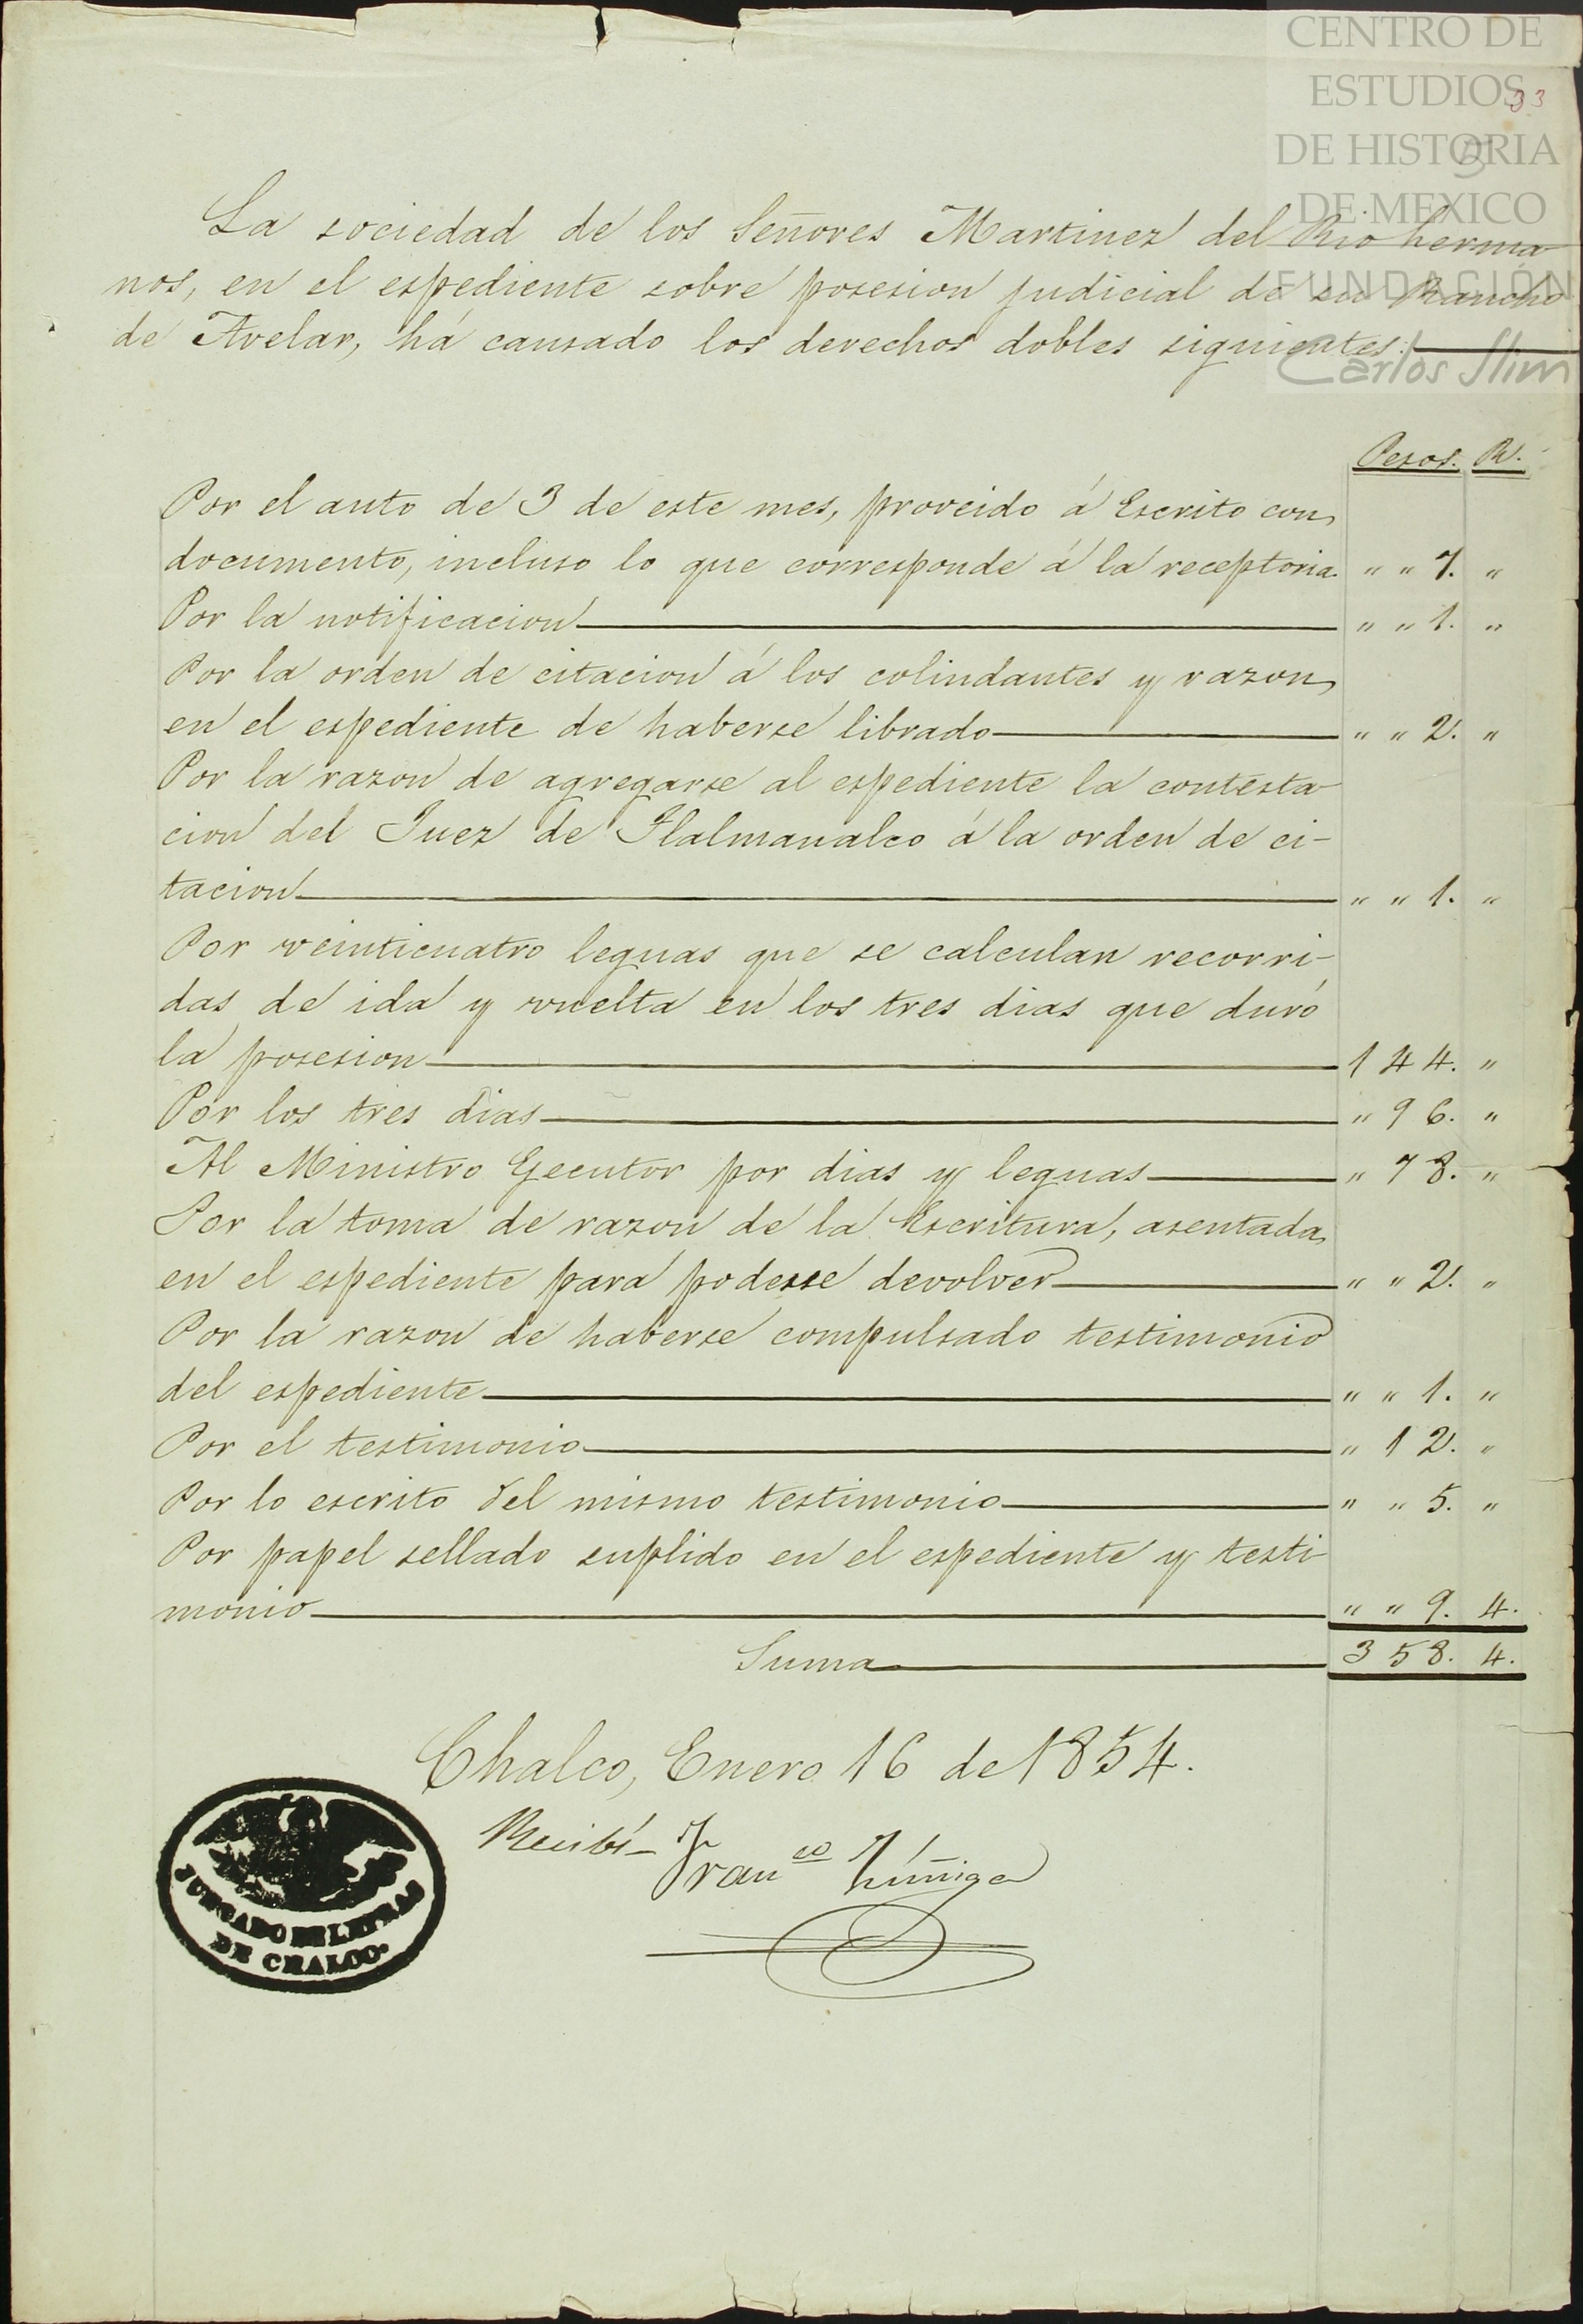 CENTRO DE
ESTUDIOS
DE HISTORIA
DE MEXICO
FUNDACIÓN
Carlos Slim
33
5
La sociedad de los Señores Martinez del Rio herma
nos, en el espediente sobre posesion judicial de su Rancho
de Avelar, há causado los derechos dobles siguientes:
Pesos. R.
Por el auto de 3 de este mes, proveido á Escrito con
documento, incluso lo que corresponde á la receptoria " " 7. "
Por la notificacion " " 1. "
Por la orden de citacion á los colindantes y razon
en el espediente de haberse librado " " 2. "
Por la razon de agregarse al espediente la contesta
cion del Juez de Tlalmanalco á la orden de ci-
tacion " " 1. "
Por veinticuatro leguas que se calculan recorri-
das de ida y vuelta en los tres dias que duró
la posesion 144. "
Por los tres dias " 96. "
Al Ministro Ejecutor por dias y leguas " 78. "
Por la toma de razon de la Escritura, asentada
en el espediente para poderse devolver " " 2. "
Por la razon de haberse compulsado testimonio
del espediente " " 1. "
Por el testimonio " 12. "
Por lo escrito del mismo testimonio " " 5. "
Por papel sellado suplido en el espediente y testi
monio " " 9. 4.
Suma 358. 4.
Chalco, Enero 16 de 1854.
Recibí- Franco Zúñiga
JUZGADO DE LETRAS
DE CHALCO.